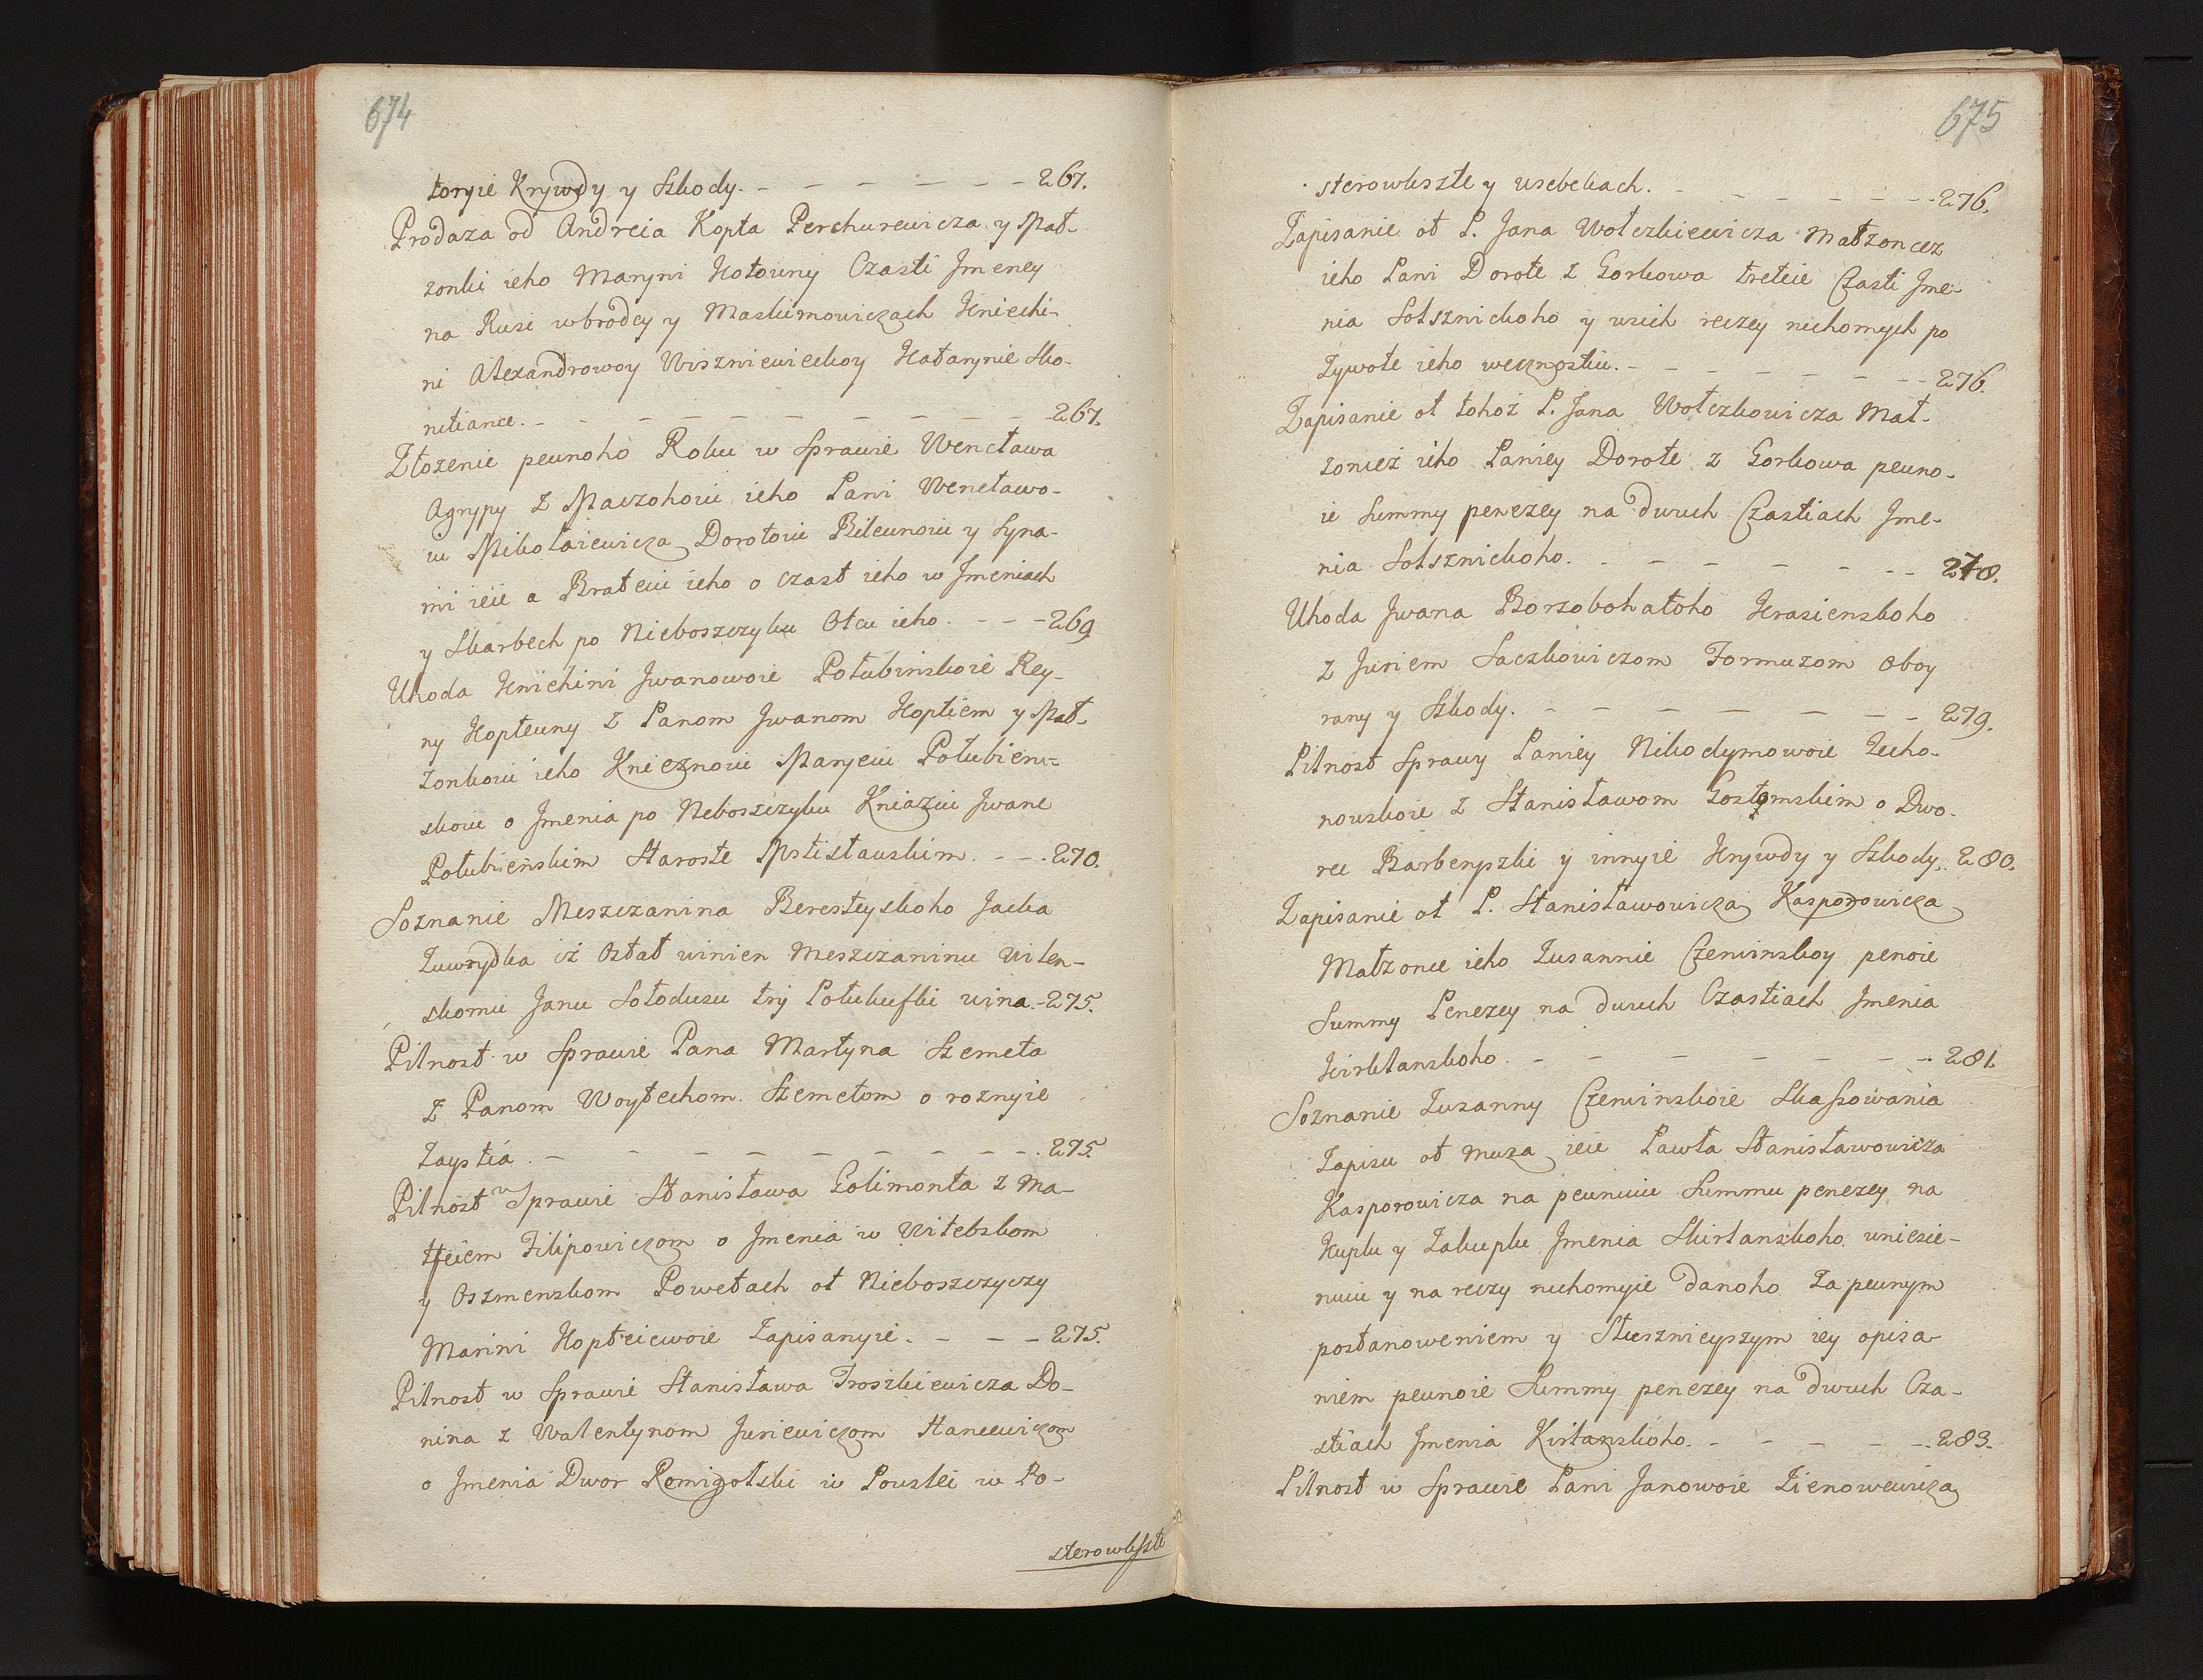 674
toryie Krywdy y Szkody. - - - - - - 267.
Prodaza od Andreia Kopta Perchurewicza y Mał-
zonki ieho Maryni Hołowny Czasti Jmeney
na Rusi wbrodcy y Maskimowiczach Kniechi-
ni Alexandrowoy Wiszniewieckoy Katarynie Sko-
rutiance. - - - - - - - - - 267.
Złozenie pewnoho Roku w Sprawie Wencława
Agrypy z Maczohoiu ieho Pani Wencławo-
iu Mikołaiewicza Dorotoiu Bilewnoiu y Syna-
mi ieie a Brateiu ieho o czast ieho w Jmeniach
y Skarbech po Nieboszczyku Otcu ieho. - - - 269
Uhoda Kniehini Jwanowoie Połubinskoie Rey-
ny Hoptewny z Panom Jwanom Hoptiem y Mał-
zonkoiu ieho Knieznoiu Maryeiu Połubien-
skoiu o Jmenia po Neboszczyku Kniaziu Jwane
Połubienskim Staroste Mstisławskim. - - . 270.
Soznanie Meszczanina Beresteyskoho Jacka
Zuwrydka iz Ostał winien Meszczaninu Wilen-
skomu Janu Sołoduzu try Połukufki wina. - 275.
Pilnost w Sprawie Pana Martyna Szemeta
z Panom Woytechom. Szemetom o roznyie
Zaystia. - - - - - - - - - 275.
Pilnost w Sprawie Stanisława Golimonta z Ma-
tfeiem Filipowiczom o Jmenia w Witebskom
y Oszmenskom Powetach ot Nieboszczyczy
Marini Hopteiewoie Zapisanyie. - - - 275.
Pilnost w Sprawie Stanisława Troszkiewicza Do-
nina z Walentynom Juriewiczom Hancewiczom
o Jmenia Dwor Remigolski w Pouslei w Po-
sterowleszte
675
sterowleszte y usebekach. - - - - - - - 276.
Zapisanie ot P. Jana Wołczkiewicza Małzoncez
ieho Pani Dorote z Gorkowa treteie Czasti Jme-
nia Solsznickoho y wsich reczey ruchomych po
Zywote ieho wecznostiu. - - - - - - - - 276.
Zapisanie ot tohoż P. Jana Wołczkowicza Mał-
zoncez ieho Paniey Dorote z Gorkowa pewno-
ie Summy penezey na dwuch Czastiach Jme-
nia Solsznickoho. - - - - - - - 278.
Uhoda Jwana Borzobohatoho Krasienskoho
z Juriem Saczkowiczom Formuzom oboy
rany y Szkody. - - - - - - - - 279.
Pilnost Sprawy Paniey Nikodymowoie Cecho-
nowskoie z Stanisławom Gostomskim o Dwo-
rec Barberyszki y innyie Krywdy y Szkody. 280.
Zapisanie ot P. Stanisławowicza Kasporowicza
Małzonce ieho Zusannie Czewinskoy penoie
Summy Penezey na dwuch Czastiach Jmenia
Kirklanskoho. - - - - - - - - 281.
Soznanie Zuzanny Czewinskoie Skassowania
Zapisu ot muza ieie Pawła Stanisławowicza
Kasporowicza na pewnuiu Summu penezey na
Kuplu y Zakuplu Jmenia Skirlanskoho. uniesie-
nuiu y na reczy ruchomyie danoho Za pewnym
postanoweniem y Słusznieyszym iey opisa-
niem pewnoie Summy penezey na dwuch Cza-
stiach Jmenia Kirlanskoho. - - - - - - 283.
Pilnost w Sprawie Pani Janowoie Zienowewicza